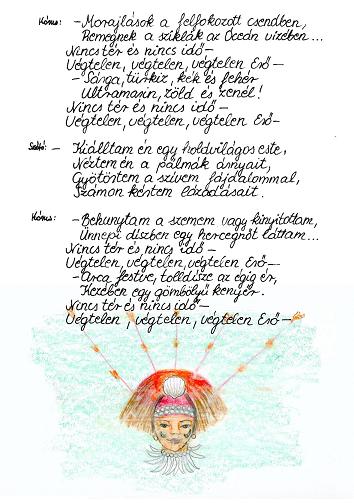 Kórus: -Morajlások a felfokozott csendben,
Remegnek a sziklák az Óceán vizében...
Nincs tér és nincs idő-
Végtelen, végtelen, végtelen Erő-
-Sárga, türkiz, kék és fehér
Ultramarin, zöld és zenél!
Nincs tér és nincs idő-
Végtelen, végtelen, végtelen Erő-
- Kiálltam én egy holdvilágos este,
Néztem én a pálmák árnyait,
Gyötörtem a szívem fájdalommal,
Számon kértem lázadásait.
Kórus: -Behunytam a szemem vagy kinyitottam,
Ünnepi díszben egy herceget láttam...
Nincs tér és nincs idő-
Végtelen, végtelen, végtelen Erő-
-Arca festve, tolldísze az égig ér,
Kezében egy gömbölyű kenyér.
Nincs tér és nincs idő-
Végtelen, végtelen, végtelen Erő-